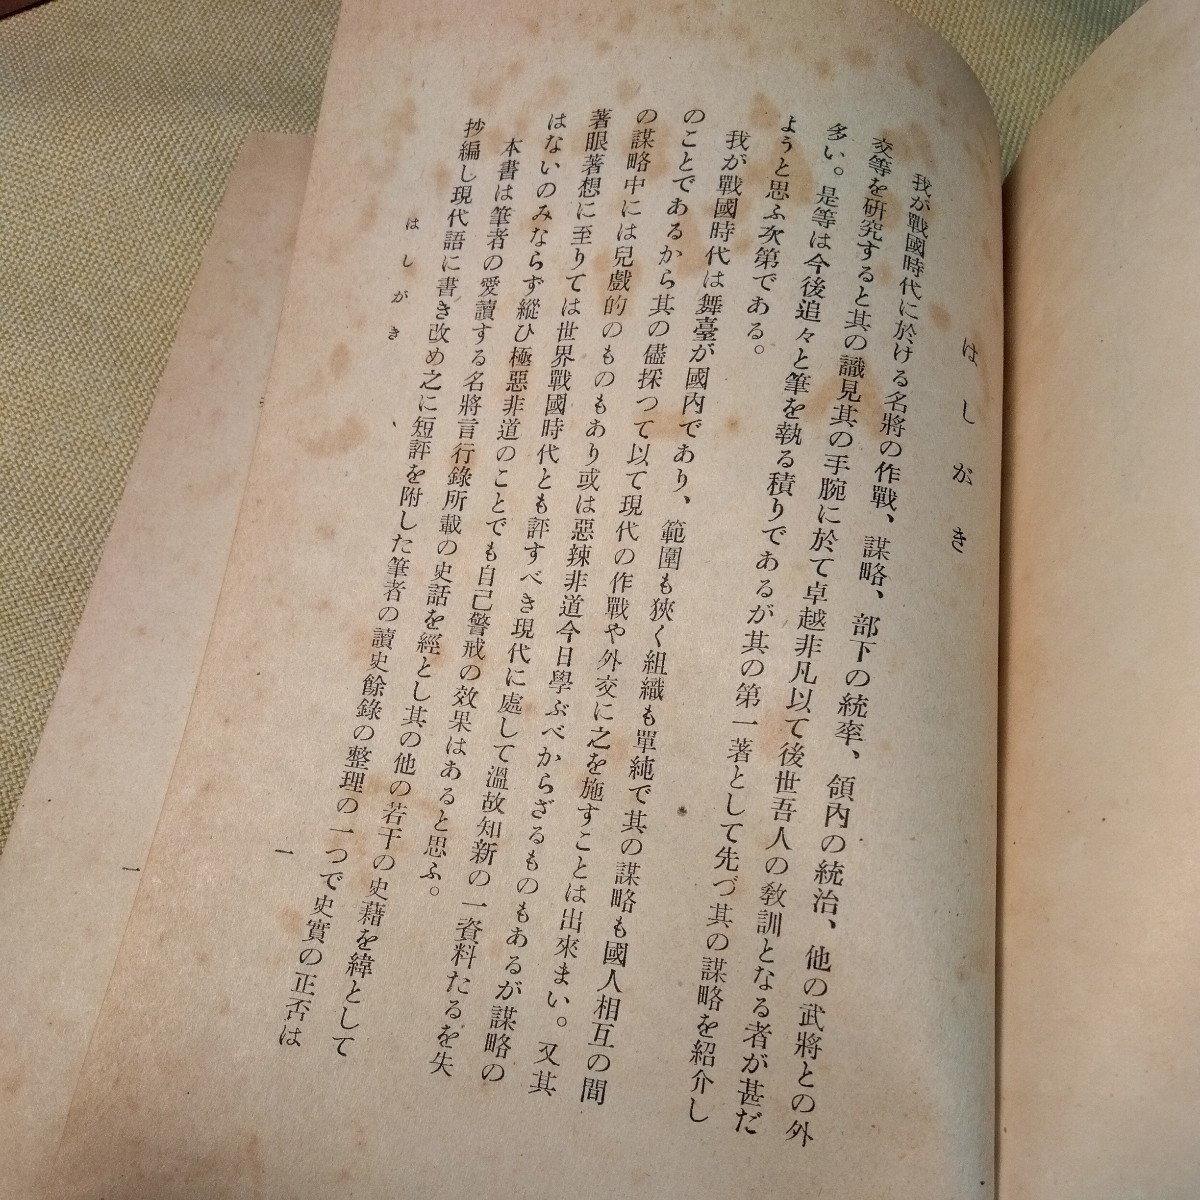 はしがき
我が戰國時代に於ける名將の作戰、謀略、部下の統率、領内の統治、他の武將との外
交等を研究すると其の識見其の手腕に於て卓越非凡以て後世吾人の敎訓となる者が甚だ
多い。是等は今後追々と筆を執る積りであるが其の第一著として先づ其の謀略を紹介し
ようと思ふ次第である。
我が戰國時代は舞臺が國内であり、範圍も狹く組織も單純で其の謀略も國人相互の間
のことであるから其の儘採つて以て現代の作戰や外交に之を施すことは出來まい。又其
の謀略中には兒戲的のものもあり或は惡辣非道今日學ぶべからざるものもあるが謀略の
著眼著想に至りては世界戰國時代とも評すべき現代に處して溫故知新の一資料たるを失
はないのみならず縱ひ極惡非道のことでも自己警戒の效果はあると思ふ。
本書は筆者の愛讀する名將言行錄所載の史話を經とし其の他の若干の史藉を緯として
抄編し現代語に書き改め之に短評を附した筆者の讀史餘錄の整理の一つで史實の正否は
はしがき
一
一